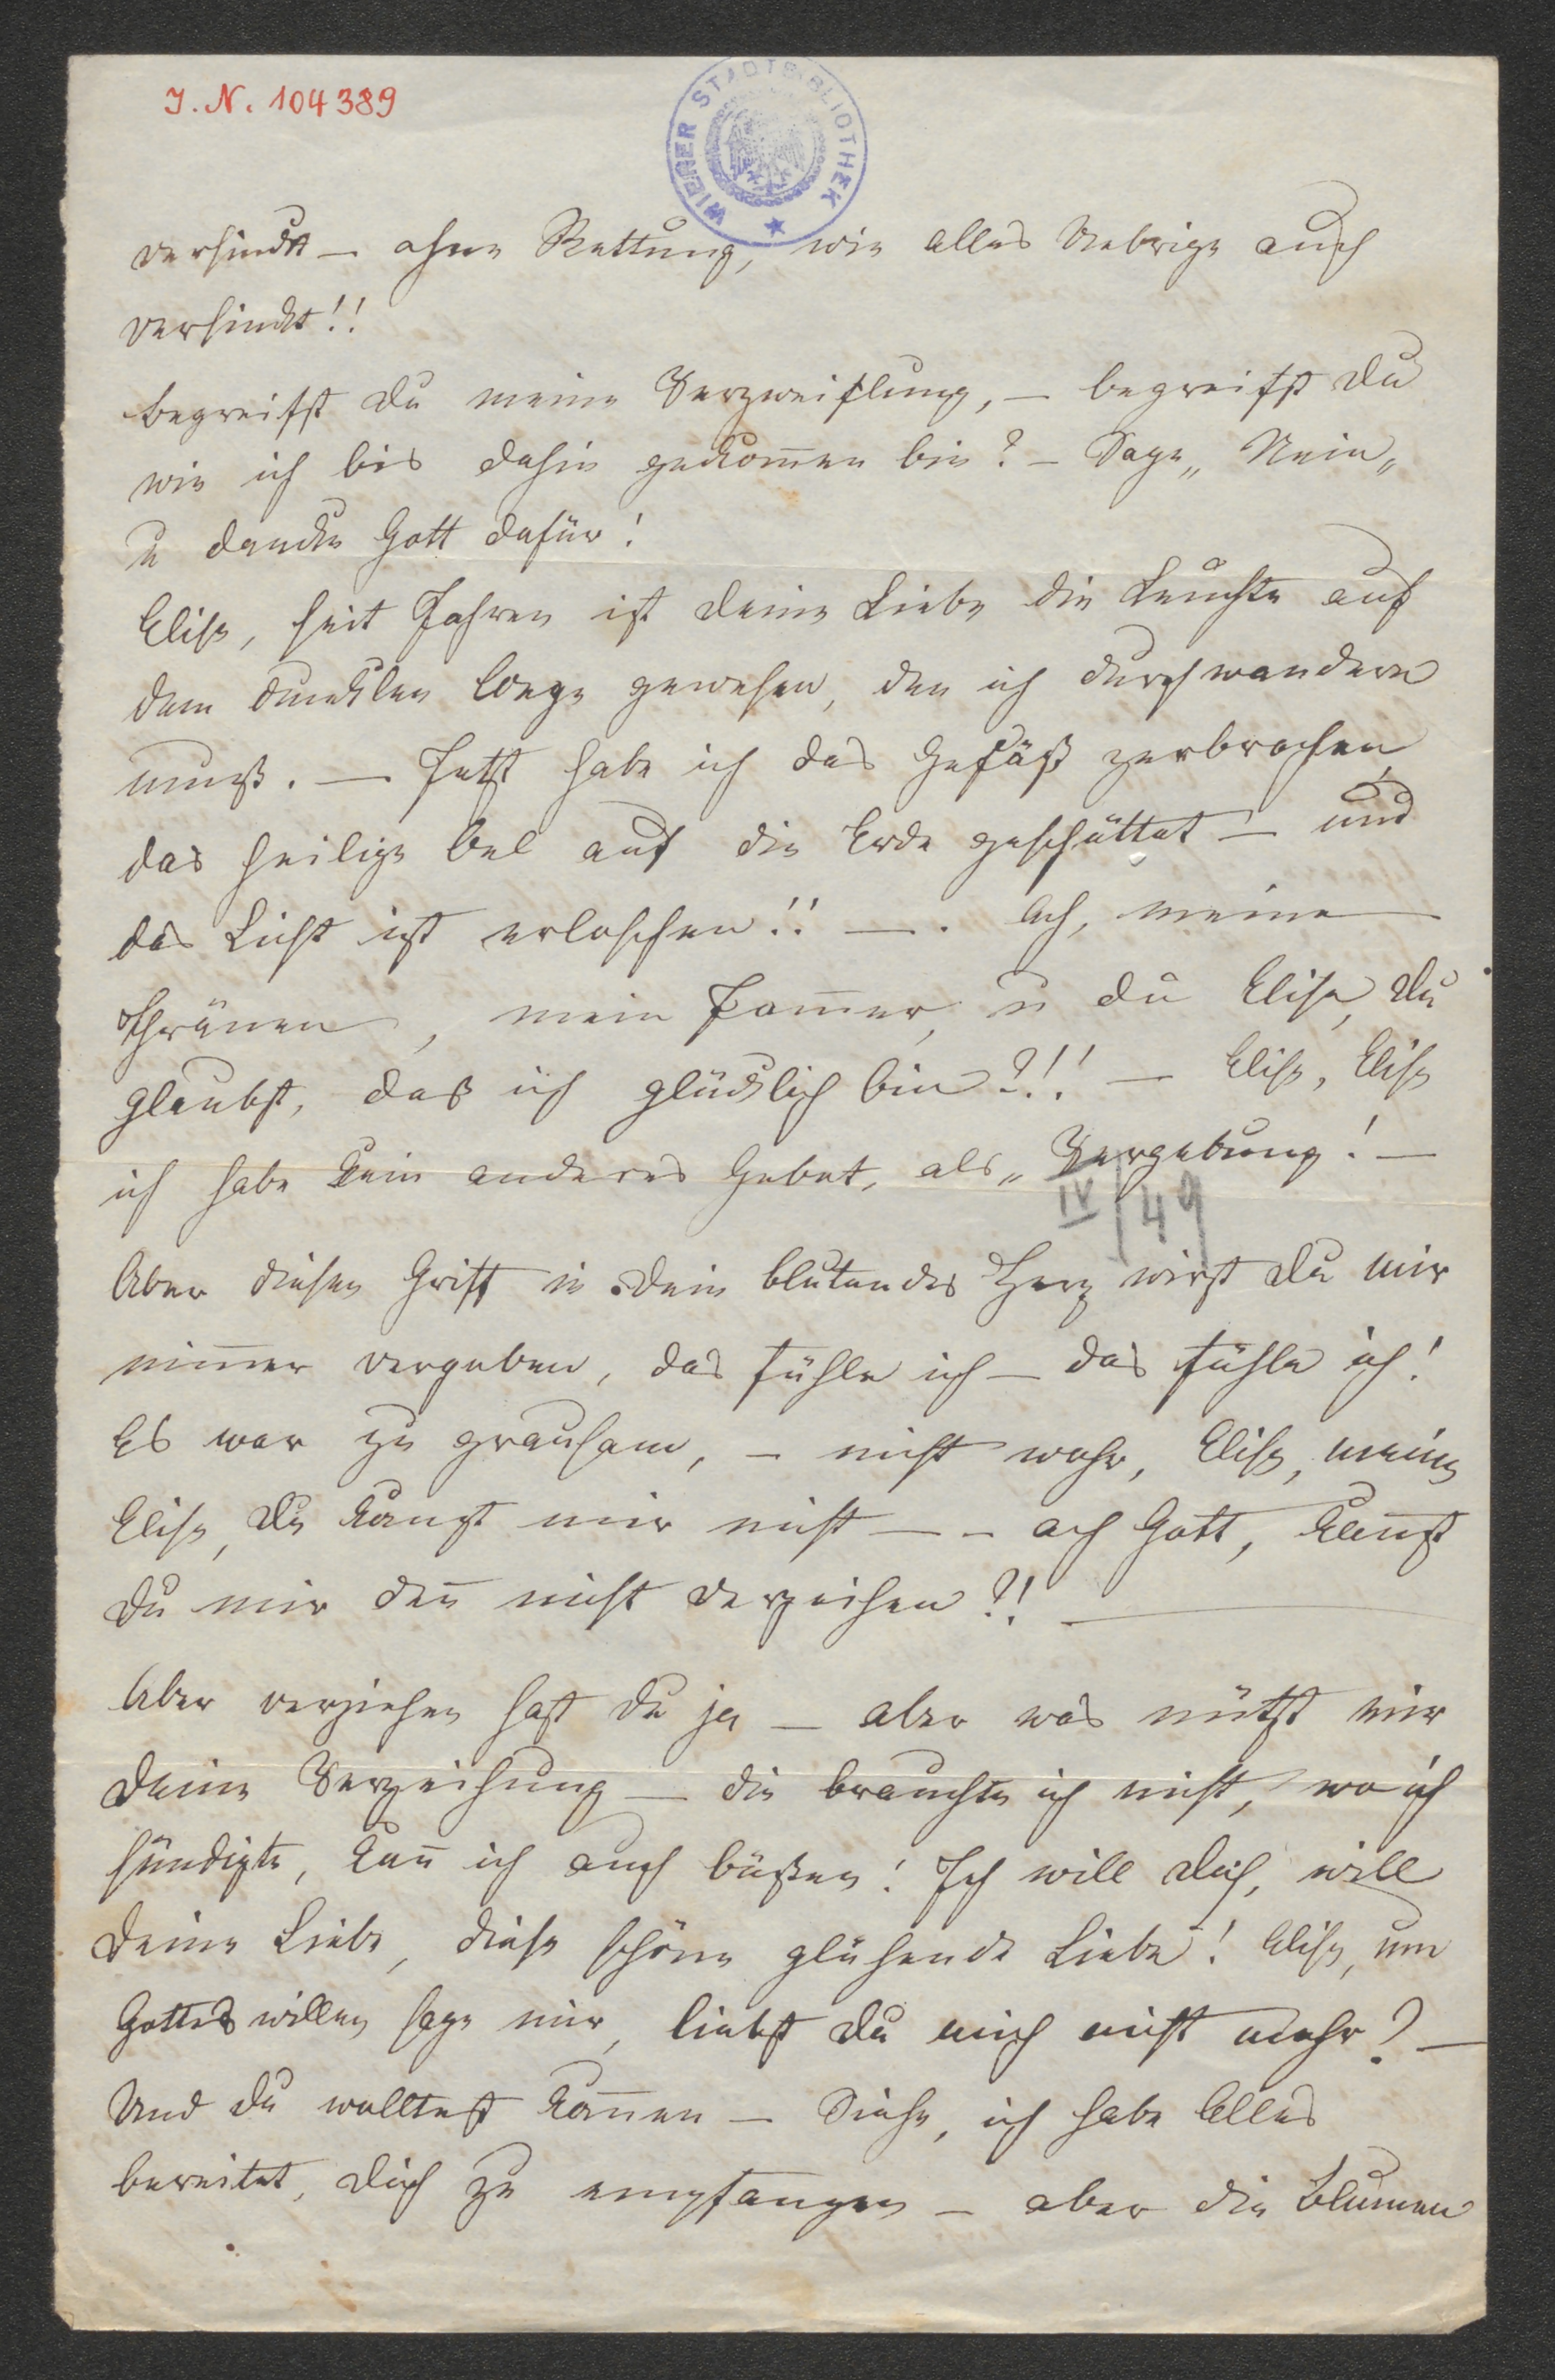 I.N. 104389
WIENER STADTBIBLIOTHEK
versinckt — ohne Rettung, wie alles Uebrige auch
versinckt!!
begreifst du meine Verzweiflung, — begreifst du
wie ich bis dahin gekom̄en bin? — Sage „Nein„
u dancke Gott dafür!
Elise, seit Jahren ist deine Liebe die Leuchte auf
dem dunklen Wege gewesen, den ich durchwandern
muß. — Jetzt habe ich das Gefäß zerbrochen
das heilige Oel auf die Erde geschüttet — und
das Licht ist erloschen!! —. Ach, meine
Thränen, mein Jam̄er, u du Elise, du
glaubst, daß ich glücklich bin?!! — Elise, Elise
ich habe kein anderes Gebet, als „Vergebung! —
IV/49
Aber diesen Griff in dein blutendes Herz wirst du mir
nim̄er vergeben, das fühle ich — das fühle ich!
Es war zu grausam, — nicht wahr, Elise, meine
Elise, du kannst mir nicht — — ach Gott, kan̄st
du mir den̄ nicht verzeihen?! —
Aber verziehen hast du ja — aber was nützt mir
deine Verzeihung — die brauchte ich nicht, wo ich
sündigte, kan̄ ich auch büßen! Ich will dich, will
deine Liebe, diese schöne glühende Liebe! Elise, um
Gottes willen sage mir, liebst du mich nicht mehr? —
Und du wolltest kom̄en — Siehe, ich habe Alles
bereitet, dich zu empfangen — aber die Blumen